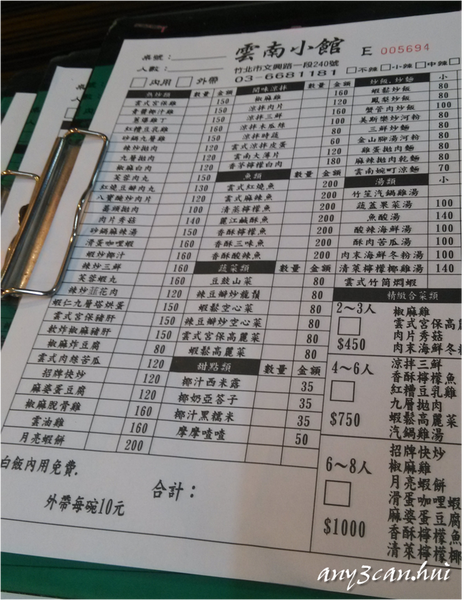 桌號:
雲南小館
E 005694
人數:
竹北市文興路一段240號
內用 外帶
03-6681181
不辣 小辣 中辣
熱炒類 數量 金額
雲式宮保雞 150
青醬椰汁雞 150
薑爆雞丁 150
紅糟豆乳雞 160
砂鍋九層雞 150
辣炒拋肉 160
九層拋肉 160
椒麻白肉
芙蓉肉丸 150
紅燒豆瓣肉丸 130
八寶辣炒肉片 120
肉片秀菇 150
砂鍋麻辣湯
滑蛋咖哩蝦 160
蝦炒椰汁 160
辣炒三鮮 160
芙蓉蝦丸 160
辣炒菲花肉 160
蝦仁九層塔烘蛋 150
雲式宮保豬肝 120
軟炸椒麻豬肝 120
椒麻炸豆腐 80
雲式肉絲苦瓜 120
招牌快炒 120
麻婆蛋豆腐 120
椒麻脫骨雞 160
雲油雞 160
月亮蝦餅 200
開味涼拌 數量 金額
椒麻雞
涼拌肉片
涼拌三鮮
涼拌木瓜絲
涼拌時蔬
雲式涼拌皮蛋
雲南大薄片
香芋檸檬白肉
魚類 數量 金額
雲式紅燒魚 200
雲式麻辣魚 200
清蒸檸檬魚 200
麗江鹹酥魚 200
香酥檸檬魚 200
香酥三味魚 200
香酥酸辣魚 200
蔬菜類 數量 金額
豆鼓山菜 80
辣豆瓣炒龍鬚 80
蝦鬆空心菜 80
辣豆瓣炒空心菜 80
雲式宮保高麗菜 80
蝦鬆高麗菜 80
甜點類 數量 金額
椰汁西米露 35
椰奶亞答子 35
椰汁黑糯米 35
摩摩喳喳 50
炒飯、炒麵 小
蝦鬆炒飯 80
鳳梨炒飯 80
蟹管肉炒飯 100
美斯樂炒河粉 80
三鮮炒麵 80
金山腳湯河粉 60
雞蛋拋肉麵 80
麻辣拋肉乾麵 80
雲南婉町涼麵 70
湯類 小
竹笙汽鍋雞湯
蔬蓋果菜湯 100
魚酸湯 140
酸辣海鮮湯 100
酥肉苦瓜湯 100
肉末海鮮冬粉湯 100
清菜檸檬椰雞湯 140
雲式竹筒燜蝦
精緻合菜類
2～3人
$450
椒麻雞
雲式宮保高
肉片秀菇
肉末海鮮冬
4～6人
$750
涼拌三鮮
香酥檸檬魚
紅糟豆乳雞
九層拋肉
蝦鬆高麗菜
汽鍋雞湯
6～8人
$1000
招牌快炒
椒麻雞
月亮蝦餅
滑蛋咖哩蝦
麻婆蛋豆腐
香酥檸檬魚
清菜檸檬椰
白飯內用免費.
外帶每碗10元
合計:
any3can.hui